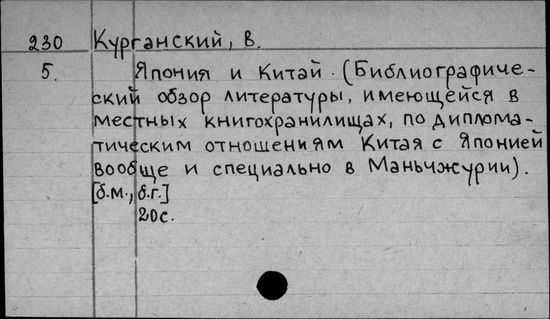 230 Курганский, В.
5. Япония и Китай. (Библиографиче-
ский обзор литературы, имеющейся в
местных книгохранилищах, по диплома-
тическим отношениям Китая с Японией
вообще и специально в Маньчжурии).
[б.м., б.г.]
20с.